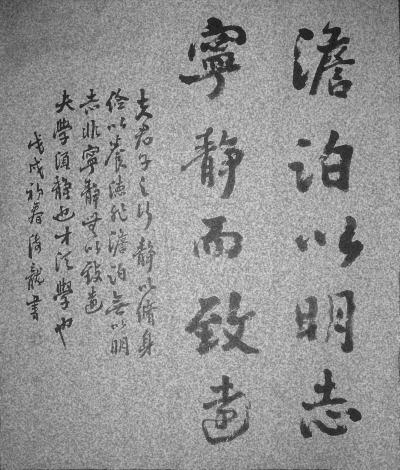 澹泊以明志
寧靜而致遠
夫君子之行靜以脩身
儉以養德非澹泊無以明
志非寧靜無以致遠
夫學須靜也才須學也
戊戌初春海龍書